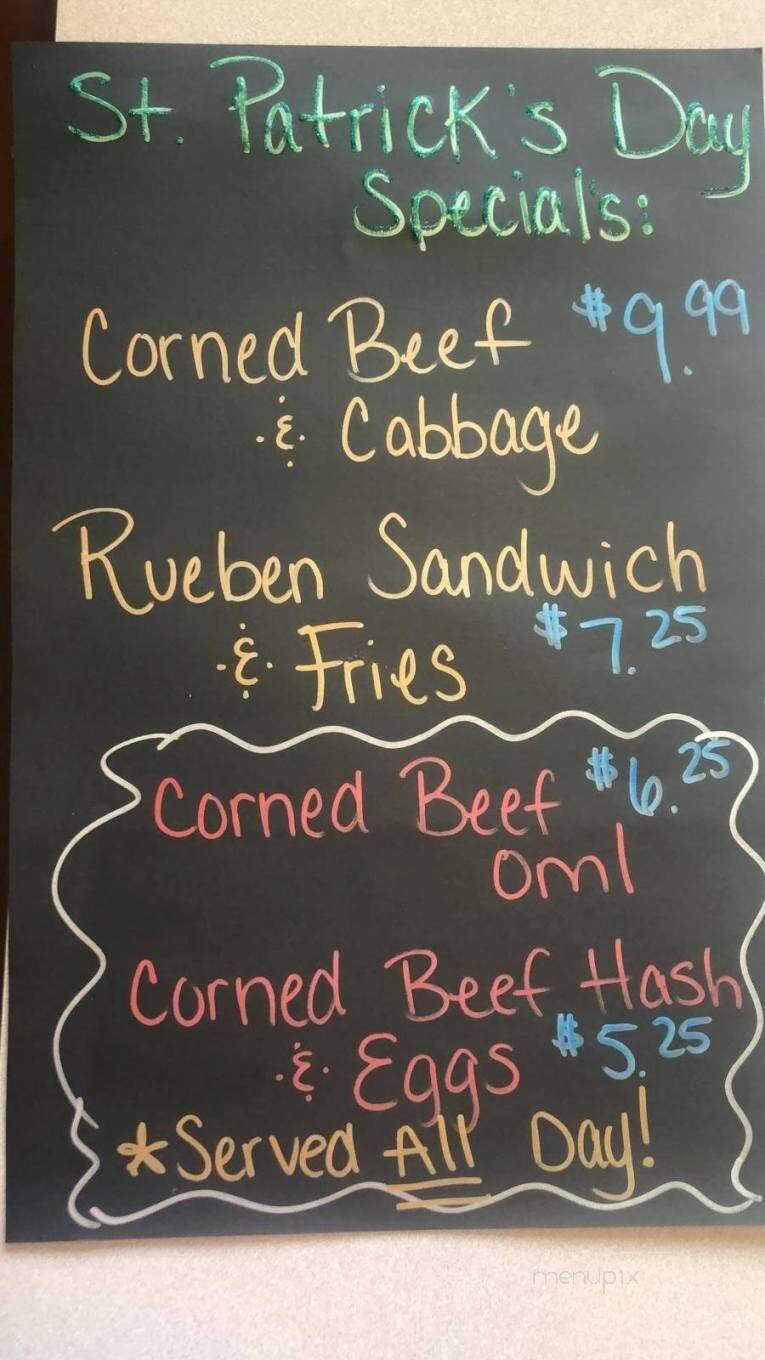 St. Patrick's Day
Special's:
Corned Beef $9.99
& Cabbage
Rueben Sandwich
& Fries $7.25
Corned Beef $6.25
oml
Corned Beef Hash
& Eggs $5.25
*Served All Day!
menupix